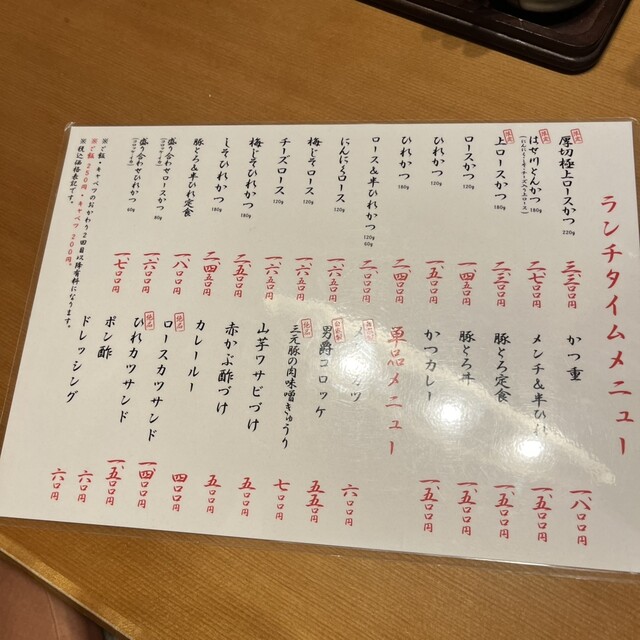 ランチタイムメニュー
限定
厚切極上ロースかつ 220g 三、三〇〇円
限定
はせ川とんかつ 180g 二、七〇〇円
(にんにく・しそ・チーズ入りロース)
限定
上ロースかつ 180g 二、三〇〇円
ロースかつ 120g 一、四五〇円
ひれかつ 120g 一、五〇〇円
ひれかつ 180g 二、四〇〇円
ロース&半ひれかつ 120g 60g 二、〇〇〇円
にんにくロース 120g 一、六五〇円
梅じそロース 120g 一、六五〇円
チーズロース 120g 一、六五〇円
梅じそひれかつ 180g 二、五〇〇円
しそひれかつ 180g 二、五〇〇円
豚とろ&半ひれ定食 二、四五〇円
盛り合わせロースかつ 80g 一、八〇〇円
盛り合わせひれかつ 60g 一、六〇〇円
一、七〇〇円
※ご飯・キャベツのおかわり2回目以降有料になります。
※ご飯 250円・キャベツ 200円。
※税込価格表記です。
かつ重 一、八〇〇円
メンチ&半ひれ 一、五〇〇円
豚とろ定食 一、五〇〇円
豚とろ丼 一、五〇〇円
かつカレー 一、五〇〇円
単品メニュー
カツ 六〇〇円
自家製
男爵コロッケ 五五〇円
絶品
三元豚の肉味噌きゅうり 七〇〇円
山芋ワサビづけ 五〇〇円
赤かぶ酢づけ 五〇〇円
カレールー 四〇〇円
絶品
ロースカツサンド 一、四〇〇円
絶品
ひれカツサンド 一、五〇〇円
ポン酢 六〇円
ドレッシング 六〇円